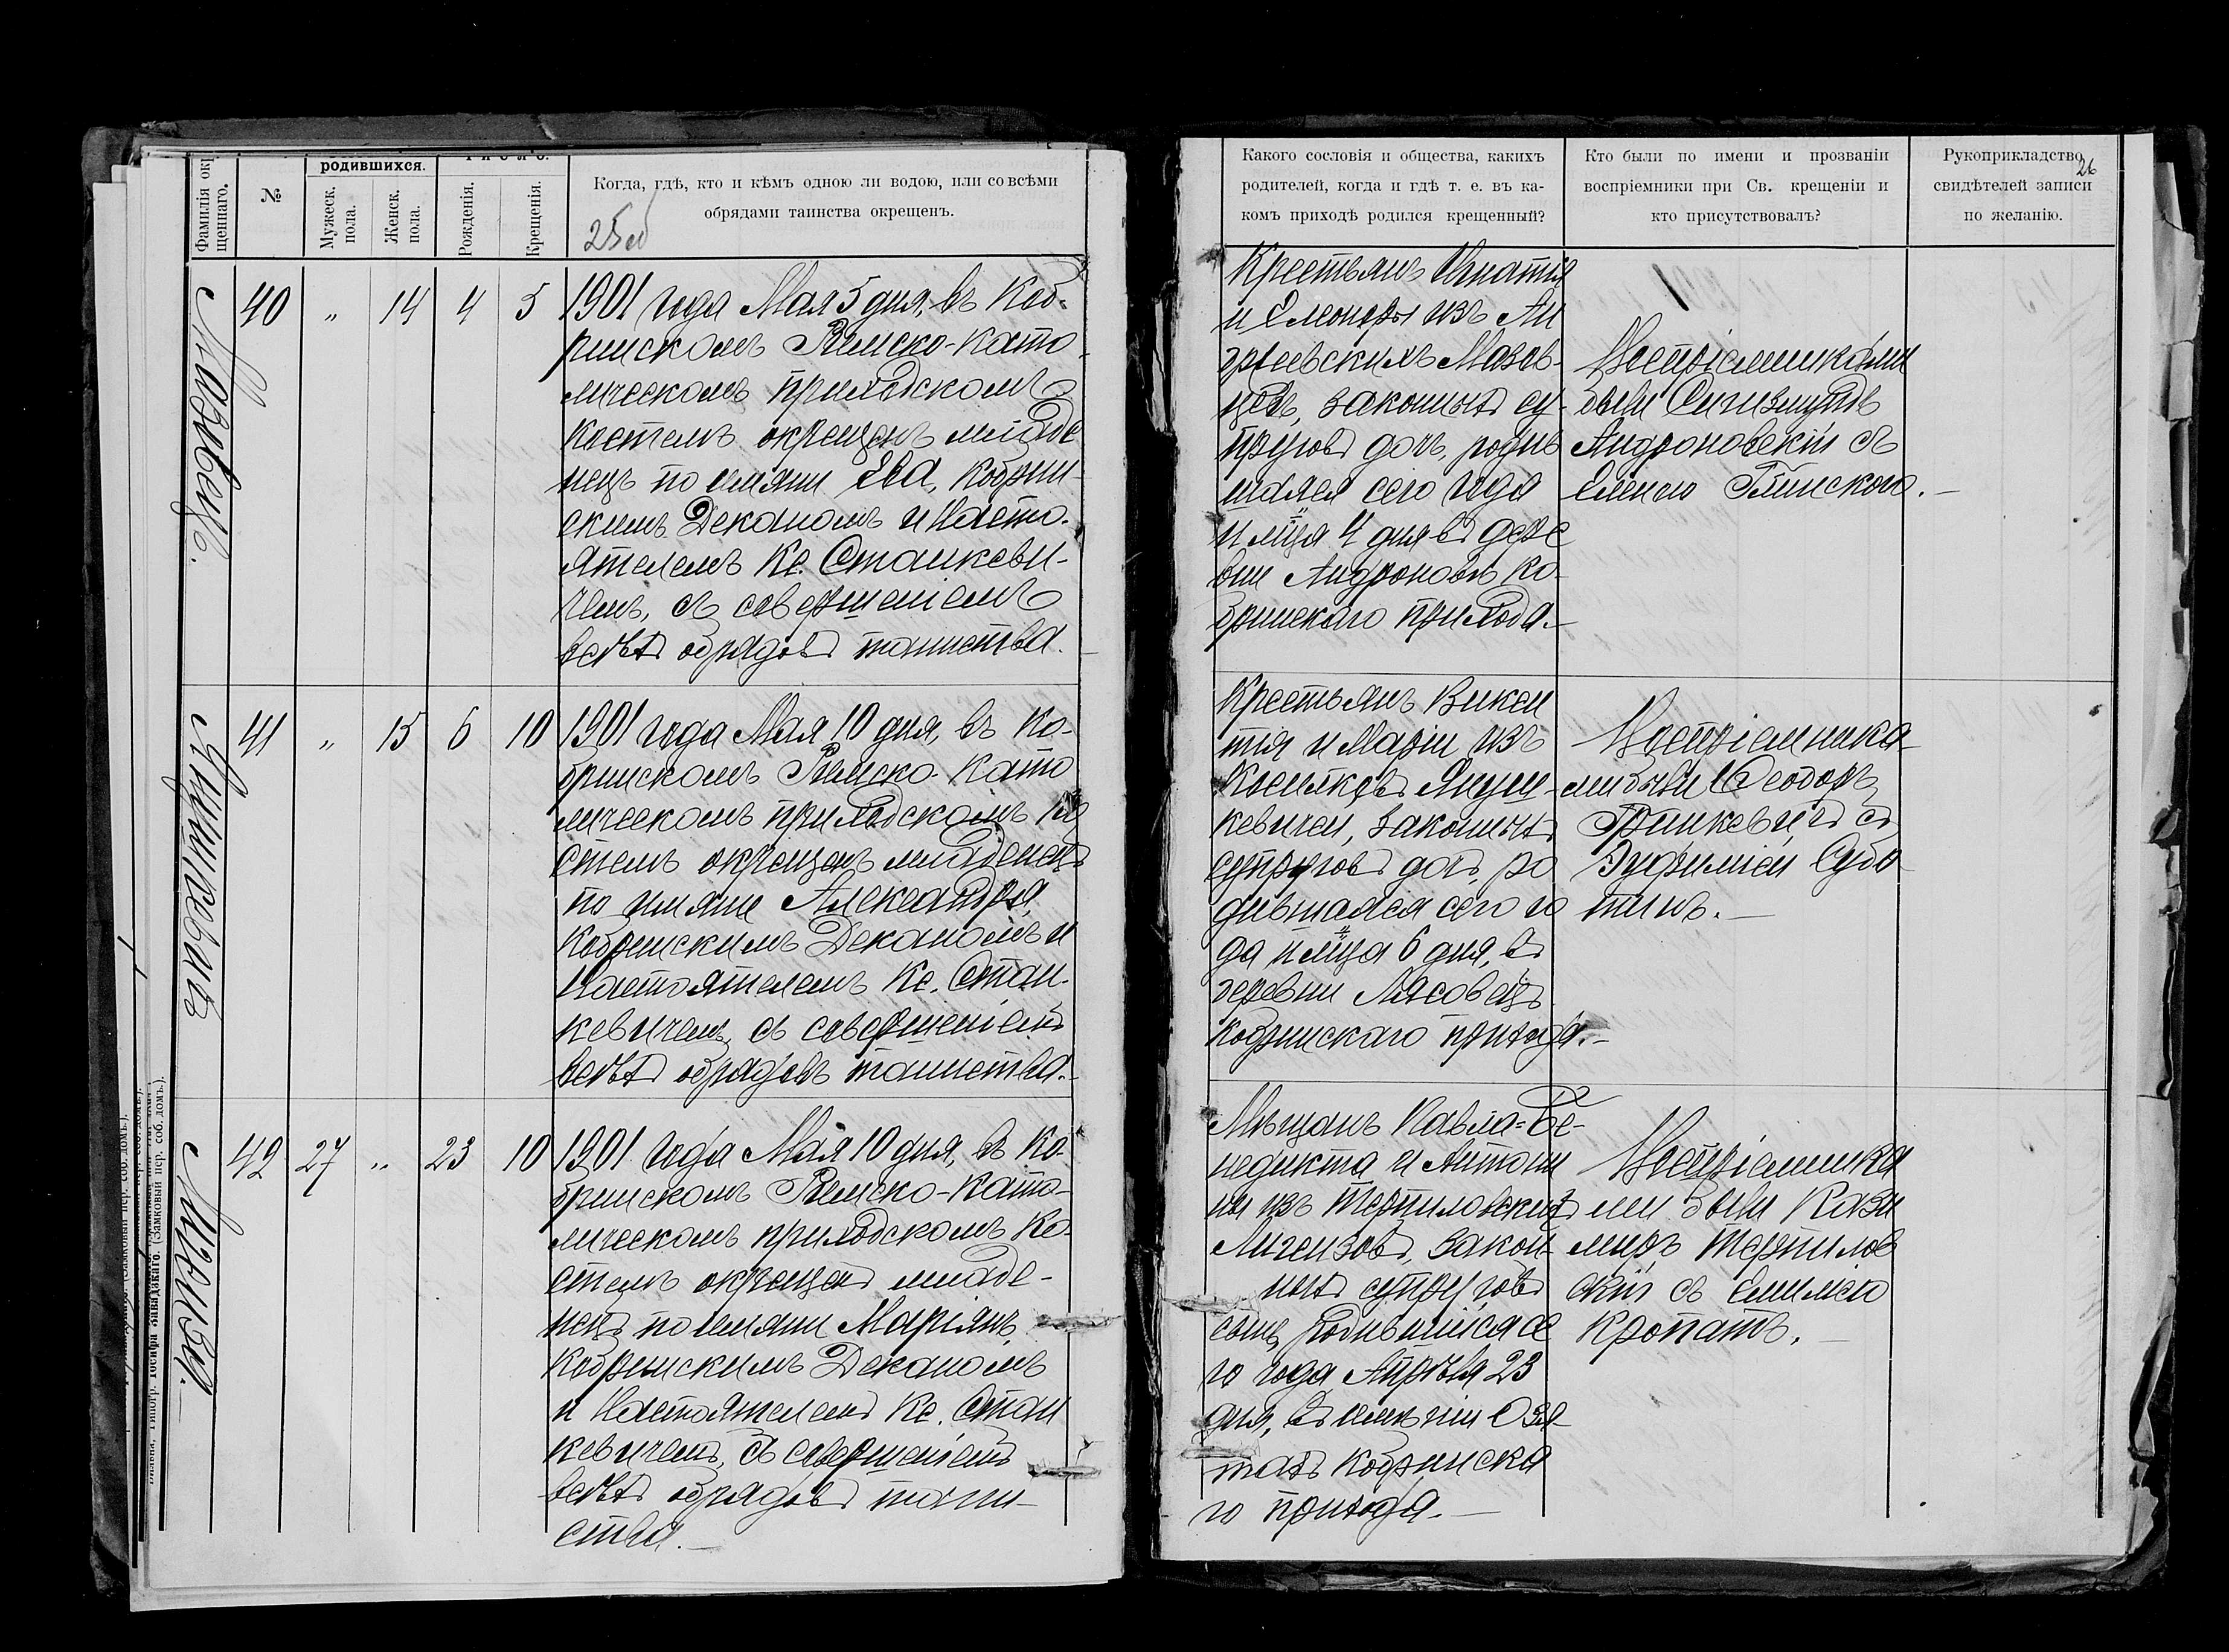 Фамилія окр
щеннаго.
№
родившихся.
Мужеск.
пола.
Женск.
пола.
Число.
Рожденія.
Крещенія.
Когда, гдѣ, кто и кѣмъ одною ли водою, или со всѣми
обрядами таинства окрещенъ.
25об
Мазовецъ.
40 „ 14 4 5
1901 года Мая 5 дня, въ Коб-
ринскомъ Римско-Като-
лическомъ приходскомъ
костелѣ окрещенъ младе
нецъ по имяни Ева, Кобрин-
скимъ Деканомъ и Насто-
ятелемъ Кс. Станкеви-
чемъ, съ совершеніемъ
всѣхъ обрядовъ таинства.
Янушкевичъ
41 „ 15 6 10
1901 года Мая 10 дня, въ Ко-
бринскомъ Римско-Като
лическомъ приходскомъ ко
стелѣ окрещенъ младенецъ
по имяни Александра,
Кобринскимъ Деканомъ и
Настоятелемъ Кс. Стан-
кевичемъ, съ совершеніемъ
всѣхъ обрядовъ таинства.
Лигенза.
42 27 „ 23 10
1901 года Мая 10 дня, въ Ко-
бринскомъ Римско-Като-
лическомъ приходскомъ Ко-
стелѣ окрещенъ младе-
нецъ по имяни Маріянъ,
Кобринскимъ Деканомъ
и Настоятелемъ Кс. Стан
кевичемъ, съ совершеніемъ
всѣхъ обрядовъ таин-
ства.
(Замковый пер. соб. домъ.).
Вильна, Типогр. Іосифа Завадзкаго. (Замковый пер. соб. домъ.).
Какого сословія и общества, какихъ
родителей, когда и гдѣ т. е. въ ка-
комъ приходѣ родился крещенный?
Кто были по имени и прозваніи
воспріемники при Св. крещеніи и
кто присутствовалъ?
Рукоприкладство
свидѣтелей записи
по желанію.
26
Крестьянъ Игнатія
и Елеоноры изъ Ан
дреевскихъ Мазов-
цевъ, законныхъ су-
пруговъ дочь, родив
шаяся сего года
и мѣсяца 4 дня въ дере
вни Андроновѣ Ко-
бринскаго прихода.
Воспріемниками
были Сигизмундъ
Андроновскій съ
Еленою Глинскою.
Крестьянъ Викен
тія и Маріи изъ
Косилковъ Януш-
кевичей, законныхъ
супруговъ дочь, ро
дившаяся сего го
да и мѣсяца 6 дня, въ
деревни Лясовецъ
Кобринскаго прихода.
Воспріемника-
ми были Ѳеодоръ
Гринкевичъ съ
Эуфиміей Субо
тинъ.
Мѣщанъ Павла-Бе-
недикта и Антони
ны изъ Терпиловскихъ
Лигензовъ, закон-
ныхъ супруговъ
сынъ, Родившійся се
го года Апрѣля 23
дня, въ имѣніи Озя
тахъ Кобринска
го прихода.
Воспріемника
ми были Кази
миръ Терпилов
скій съ Емиліею
Кропатъ.